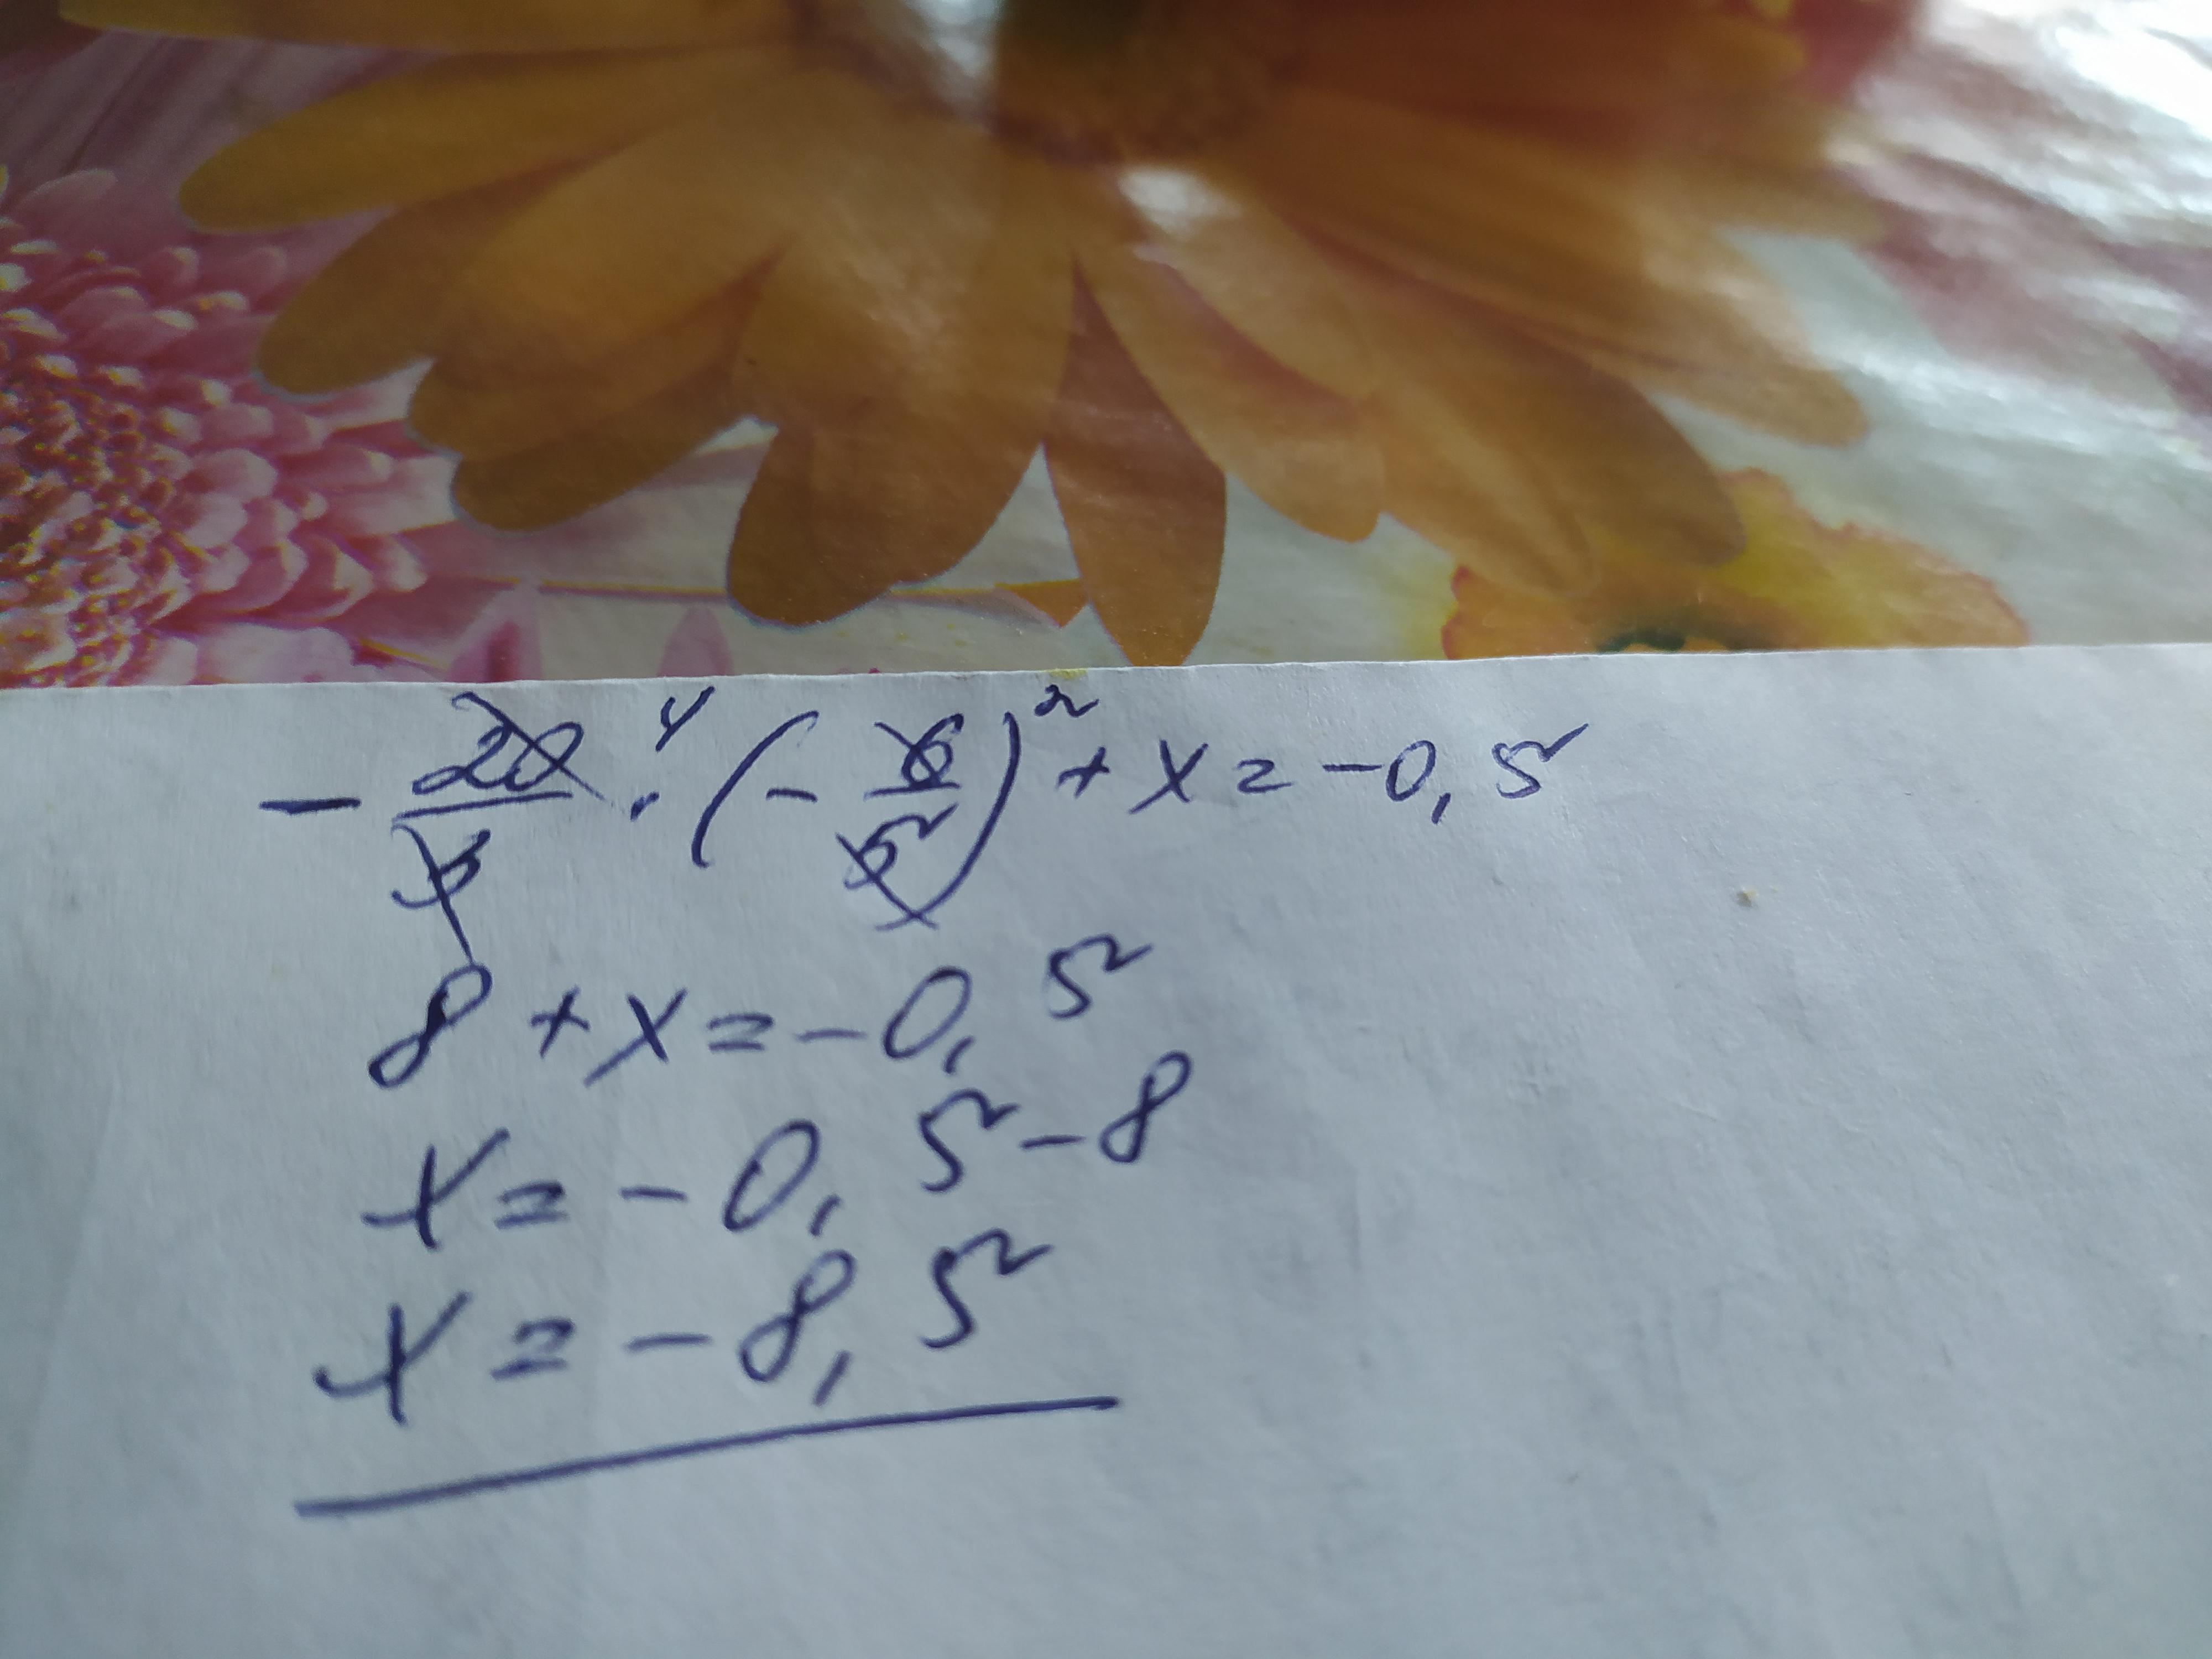 - 20/3 · 4 (- 6/5) 2 + x = -0,5
8 + x = -0,5
x = -0,5 - 8
x = -8,5